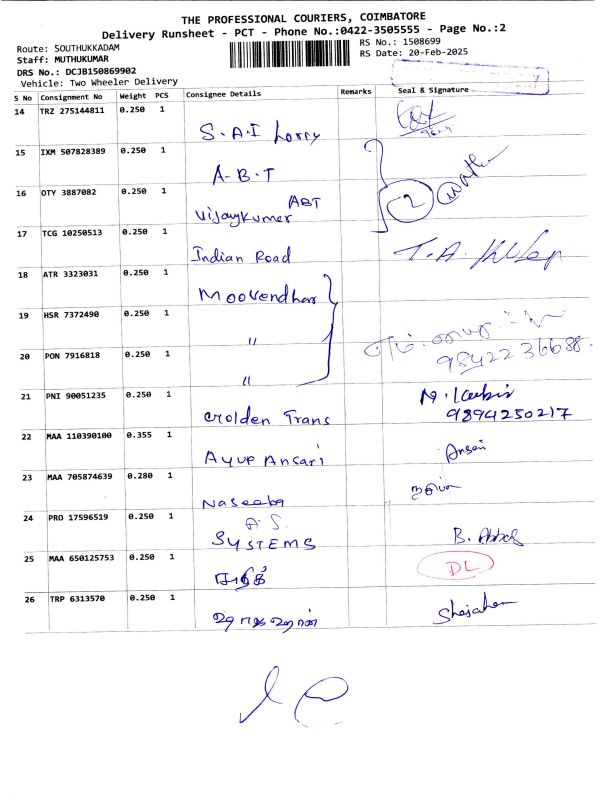 THE PROFESSIONAL COURIERS, COIMBATORE
Delivery Runsheet - PCT - Phone No.:0422-3505555 - Page No.:2
Route: SOUTHUKKADAM RS No.: 1508699
Staff: MUTHUKUMAR RS Date: 20-Feb-2025
DRS No.: DCJB150869902
Vehicle: Two Wheeler Delivery
S No Consignment No Weight PCS Consignee Details Remarks Seal & Signature
14 TRZ 275144811 0.250 1
S.A.I Lorry
15 IXM 507828389 0.250 1
A-B-T
16 OTY 3887082 0.250 1
ABT
Vijaykumer 2
17 TCG 10250513 0.250 1
Indian Road T.A.
18 ATR 3323031 0.250 1
Moovendhar
19 HSR 7372490 0.250 1
"
20 PON 7916818 0.250 1 98422 36688
"
21 PNI 90051235 0.250 1
Golden Trans 9894250217
22 MAA 110390100 0.355 1
Ayup Ansari Ansari
23 MAA 705874639 0.280 1
Naseeba
24 PRO 17596519 0.250 1
A.S.
SYSTEMS B.
25 MAA 650125753 0.250 1
DL
26 TRP 6313570 0.250 1
Shajahan